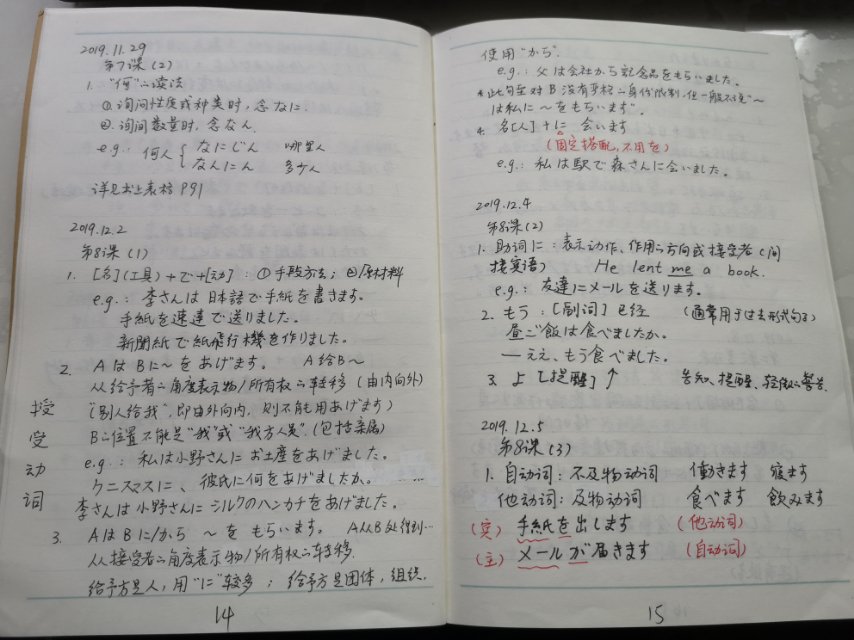 2019.11.29
第7课(2)
1. "何"の读法
①. 询问性质或种类时, 念なに.
②. 询问数量时, 念なん.
e.g.: 何人 { なにじん 哪里人
なんにん 多少人
详见书上表格 P91
2019.12.2
第8课(1)
1. [名](工具)+で+[动]: ①手段方法; ②原材料
e.g.: 李さんは日本語で手紙を書きます.
手紙を速達で送りました.
新聞紙で紙飛行機を作りました.
2. AはBに～をあげます. A给B～
从给予者の角度表示物/所有权の转移 (由内向外)
("别人给我", 即由外向内, 则不能用あげます)
Bの位置不能是"我"或"我方人员".(包括亲属)
e.g.: 私は小野さんにお土産をあげました.
クニスマスに、彼氏に何をあげましたか. ......
李さんは小野さんにシルクのハンカチをあげました.
授受动词
3. AはBに/から ～をもらいます. A从B处得到…
从接受者の角度表示物/所有权の转移.
给予方是人, 用"に"较多; 给予方是团体, 组织,
14
使用"から".
e.g.: 父は会社から記念品をもらいました.
*此句型对B没有严格の身份限制, 但一般不说"～
は私に～をもらいます".
4. 名[人]+に 会います
(固定搭配, 不用を)
e.g.: 私は駅で森さんに会いました.
2019.12.4
第8课(2)
1. 助词に: 表示动作、作用の方向或接受者(间
接宾语) He lent me a book.
e.g.: 友達にメールを送ります.
2. もう: [副词] 已经 (通常用于过去形式句子)
昼ご飯は食べましたか.
—ええ、もう食べました.
3. よ[提醒]↑ 告知、提醒、轻微の警告
2019.12.5
第8课(3)
1. 自动词: 不及物动词 働きます 寝ます
他动词: 及物动词 食べます 飲みます
(宾) 手紙を出します (他动词)
(主) メールが届きます (自动词)
15